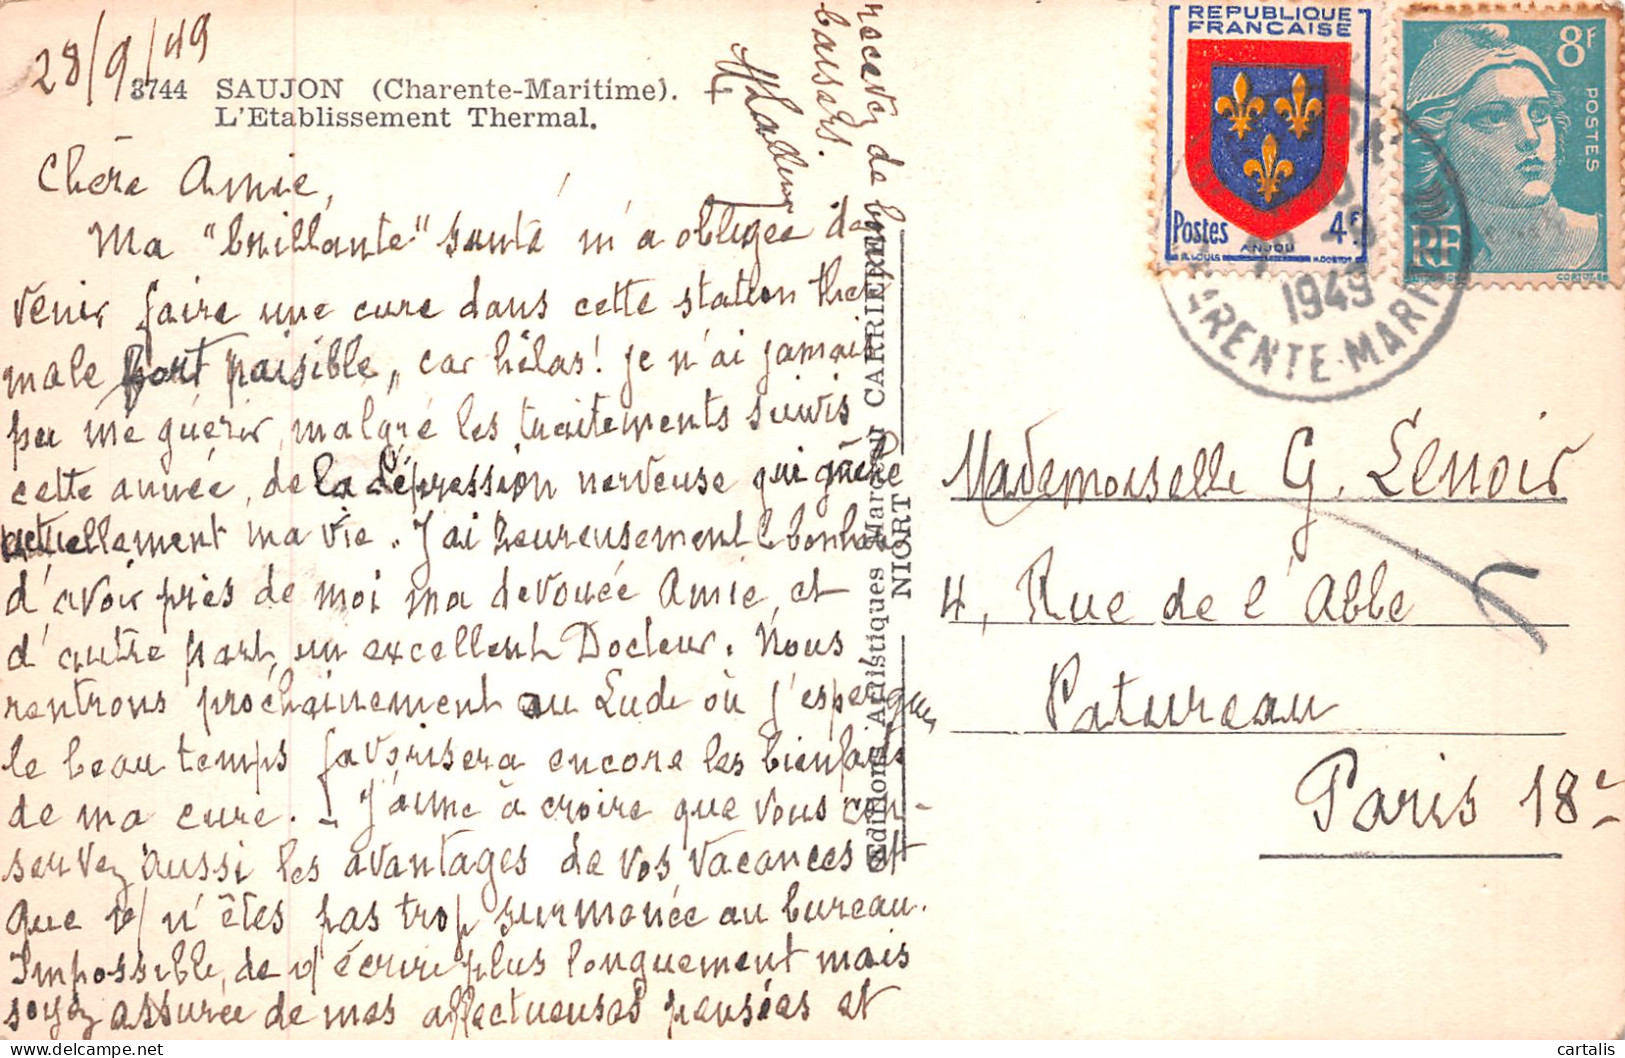 28/9/49
3744 SAUJON (Charente-Maritime).
L'Etablissement Thermal.
Chère Amie,
Ma "brillante" santé m'a obligée de
venir faire une cure dans cette station ther
male fort paisible, car hélas! je n'ai jamais
pu me guérir, malgré les traitements suivis
cette année, de la dépression nerveuse qui gâche
actuellement ma vie. J'ai heureusement le bonheur
d'avoir près de moi ma dévouée Amie, et
d'autre part, un excellent Docteur. Nous
rentrons prochainement au Lude où j'espère que
le beau temps favorisera encore les bienfaits
de ma cure. – J'aime à croire que vous con-
servez aussi les avantages de vos vacances et
que v/ n'êtes pas trop surmenée au bureau.
Impossible de v/ écrire plus longuement mais
soyez assurée de mes affectueuses pensées et
recevez de bons
baisers.
Editions Artistiques Marcel CARRIERE
NIORT
REPUBLIQUE
FRANCAISE
Postes 4F
ANJOU
R. LOUIS
8F
POSTES
RF
1949
CHARENTE-MARITIME
Mademoiselle G. Lenoir
4, Rue de l'Abbé
Patureau
Paris 18e
cartalis